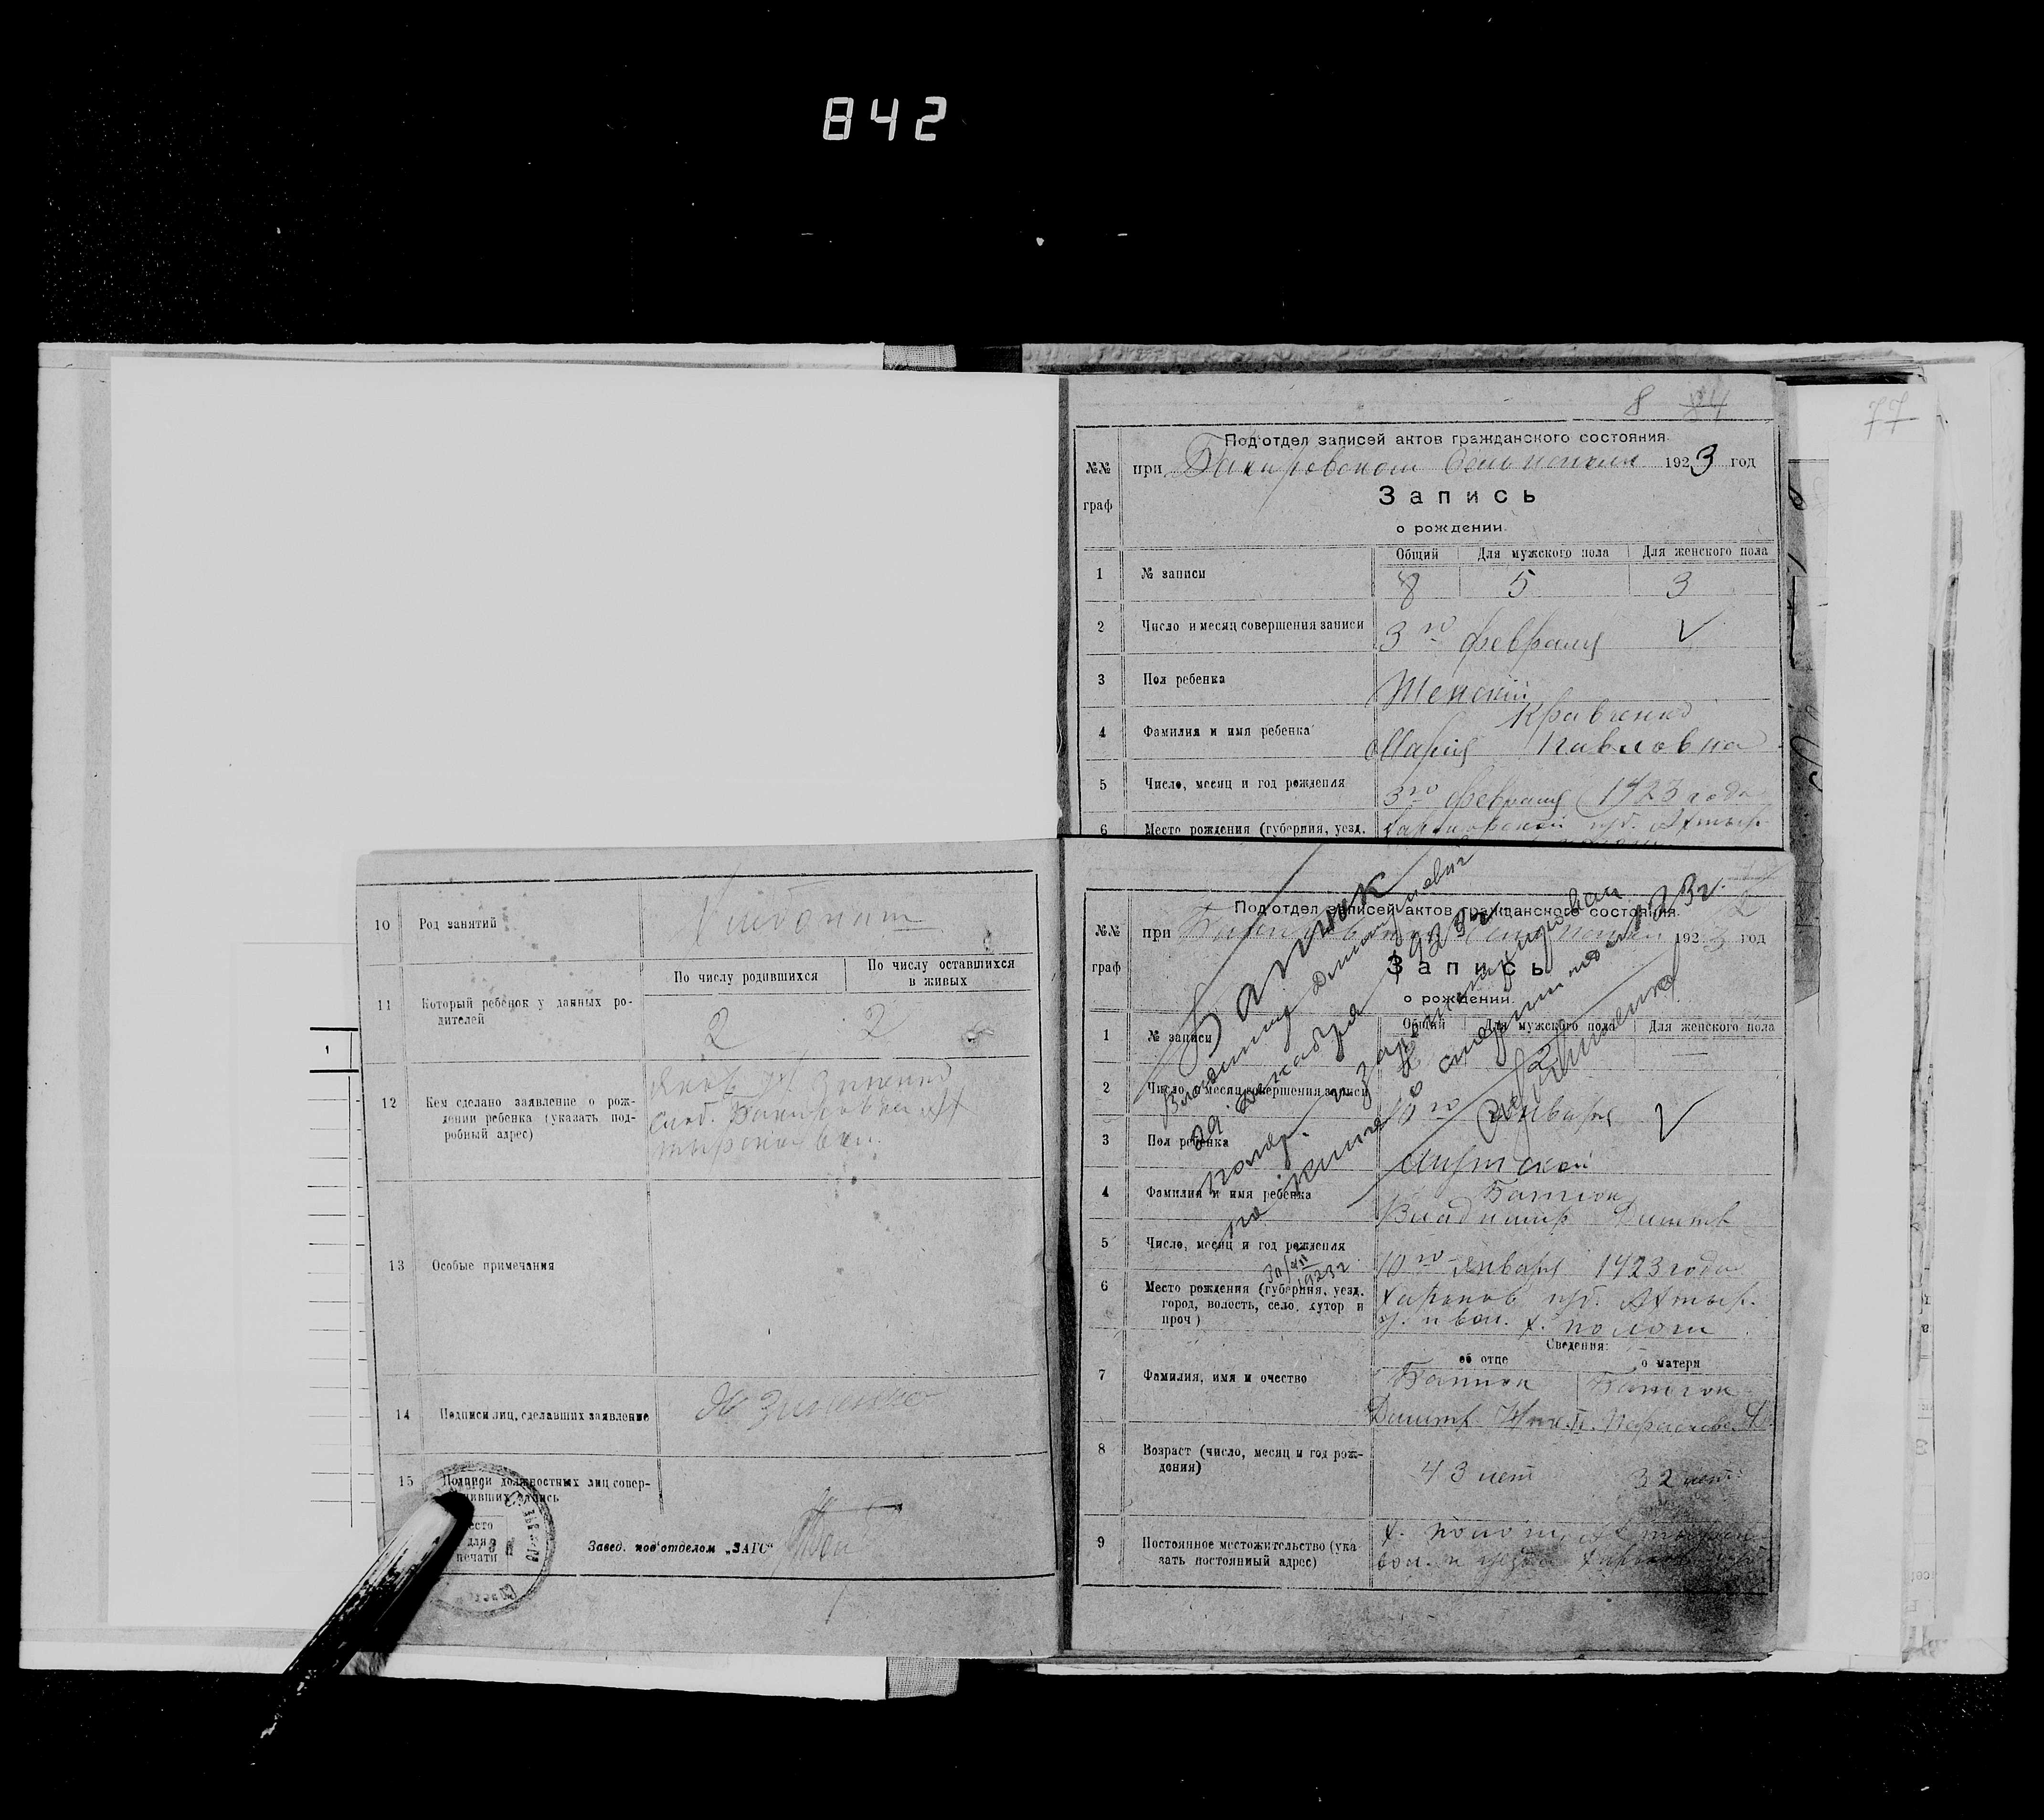 842
77
8 84
Подотдел записей актов гражданского состояния.
№№ граф
при Бакировском Сельисполк 1923 год
Запись
о рождении.
Общий Для мужского пола Для женского пола
1 № записи 8 5 3
2 Число и месяц совершения записи 3го февраля
3 Пол ребенка Женский
4 Фамилия и имя ребенка Кравченко
Мария Павловна
5 Число, месяц и год рождения 3го февраля 1923 года
6 Место рождения (губерния, уезд. Харьковской губ. Ахтыр.
10 Род занятий Хлебопаш
11 Который ребенок у данных родителей
По числу родившихся По числу оставшихся в живых
2 2
12 Кем сделано заявление о рождении ребенка (указать подробный адрес)
слоб. Бакировки Ах
тырской вол.
13 Особые примечания
14 Подписи лиц, сделавших заявление
15 Подписи должностных лиц совершивших запись
Место для печати
Завед. подотделом „ЗАГС“
Подотдел записей актов гражданского состояния.
№№ граф
при 1923 год
Запись
о рождении.
Батюк
Владимир Дмитриевич
29 декабря 1923 г.
помер. и зарегистрирован
по книге о смерти
30/XII 1923 г
Общий Для мужского пола Для женского пола
1 № записи 2 2 —
2 Число и месяц совершения записи 10го января
3 Пол ребенка Мужской
4 Фамилия и имя ребенка Батюк
Владимир Дмитв
5 Число, месяц и год рождения 10го января 1923 года
6 Место рождения (губерния, уезд. город, волость, село, хутор и проч)
Харьков губ. Ахтыр.
у. и вол. х. Пологи
Сведения:
об отце о матери
7 Фамилия, имя и очество Батюк Батюк
Дмитр.
8 Возраст (число, месяц и год рождения) 43 лет 32 лет
9 Постоянное местожительство (указать постоянный адрес)
х. Пологи, Ахтырск
вол. и уезда Харьков губ.